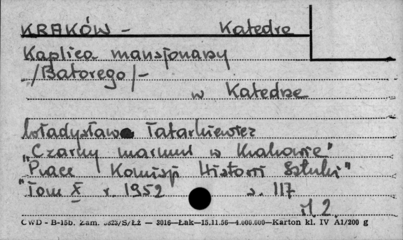 KRAKÓW - Katedra
Kaplica mansjonarzy
/Batorego/-
w Katedrze
Władysław Tatarkiewicz
"Czarny marmur w Krakowie"
"Prace Komisji Historii Sztuki"
"Tom X r. 1952 s. 117
il. 2
CWD - B-15b. Zam. S/Ł2 — 3016—Łak—15.11.56—4.000.000—Karton kl. IV A1/200 g